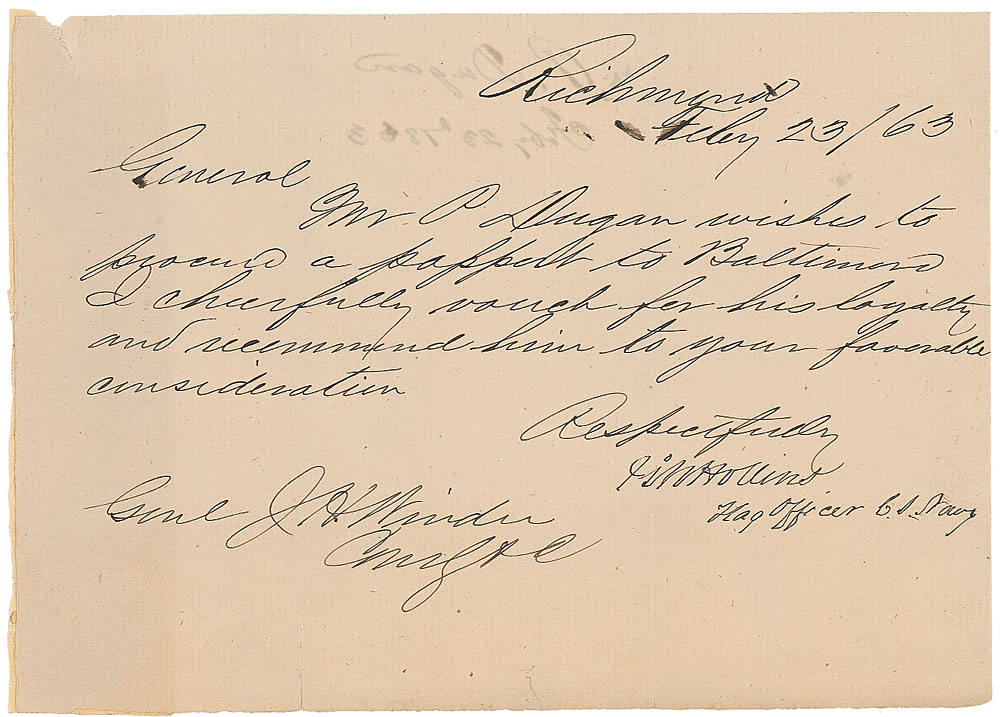 Richmond
Feby 23/63
General
Mr. P Dugan wishes to
procure a passport to Baltimore
I cheerfully vouch for his loyalty
and recommend him to your favorable
consideration
Respectfully
Hollins
Flag Officer C.S. Navy
Genl J H Winder
Comg &C
Dugan
Feby 23d 1863